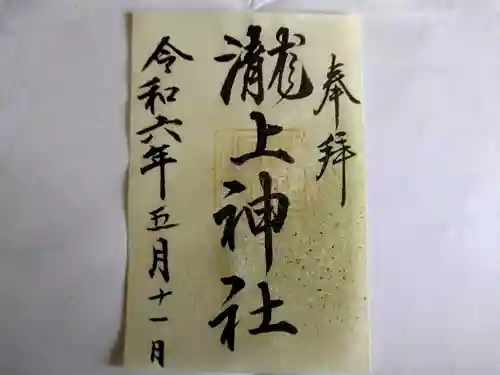 奉拝
瀧上神社
令和六年五月十一月